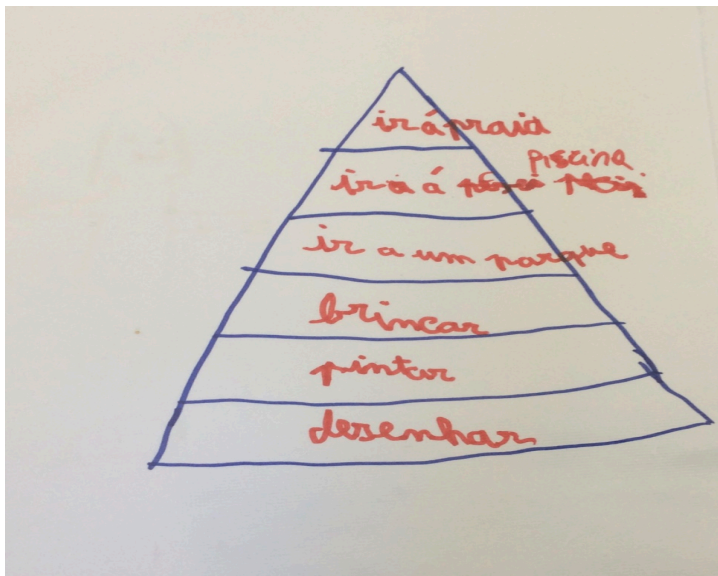 ir á praia
piscina
ir a á
ir a um parque
brincar
pintar
desenhar